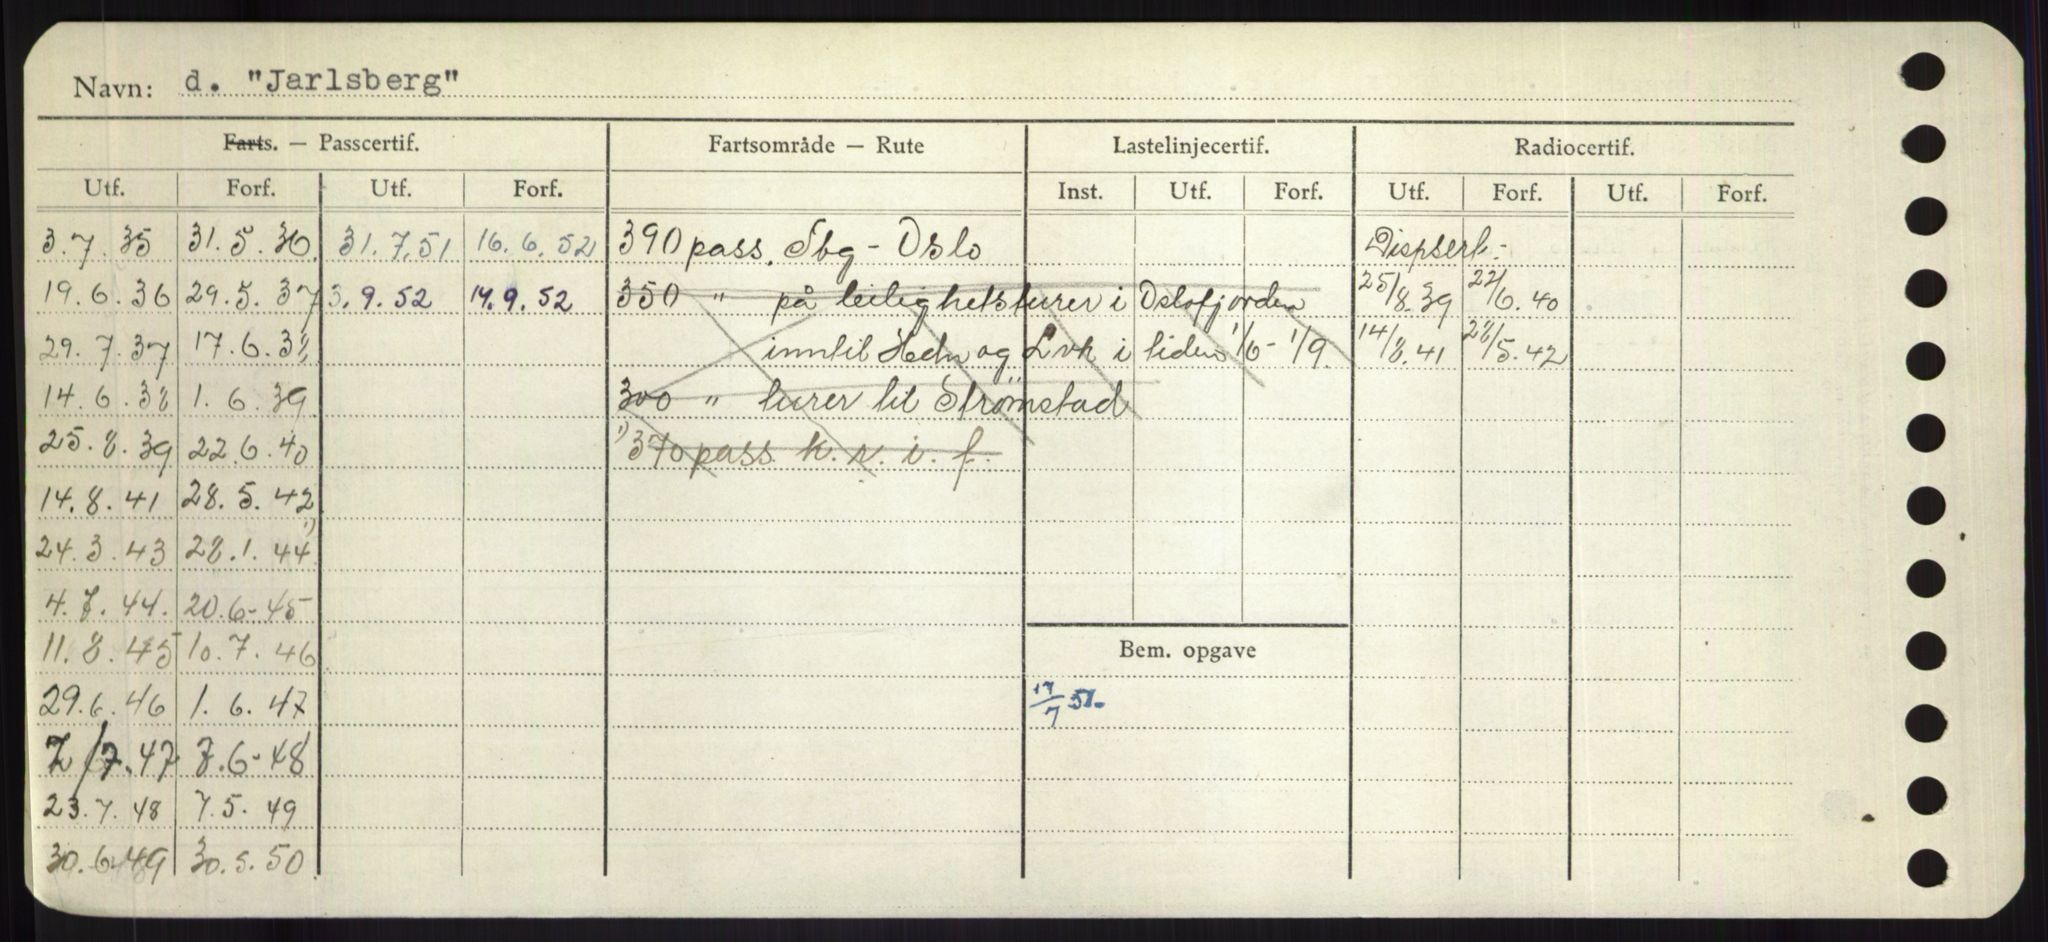 Navn: d. "Jarlsberg"
Farts. — Passcertif. Fartsområde — Rute Lastelinjecertif. Radiocertif.
Utf. Forf. Utf. Forf. Inst. Utf. Forf. Utf. Forf. Utf. Forf.
3.7.35 31.5.36. 31.7.51 16.6.52 390 pass. Sbg - Oslo
19.6.36 29.5.37 3.9.52 14.9.52 350 " på leilighetsturer i Oslofjorden 25/8.39 22/6.40
29.7.37 17.6.38 inntil Hdn og Lvk i tiden 1/6 - 1/9. 14/8.41 28/5.42
14.6.38 1.6.39 300 " turer til Strømstad
25.8.39 22.6.40 1) 370 pass. k. r. i. f.
14.8.41 28.5.42
24.3.43 28.1.44 1)
4.7.44. 20.6-45
11.8.45 10.7.46 Bem. opgave
29.6.46 1.6.47 17/7 51.
7/7.47 7.6-48
23.7.48 7.5.49
30.6.49 30.5.50